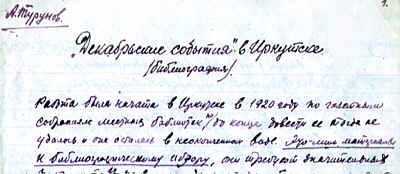 А. Турунов.
1.
„Декабрьские события" в Иркутске
/библиография/.
Работа была начата в Иркутске в 1920 году по
собраниям местных библиотек, но конца довести ее тогда не
удалось и она осталась в неоконченном виде. Это - лишь материалы
к библиографическому обзору, они требуют значительных